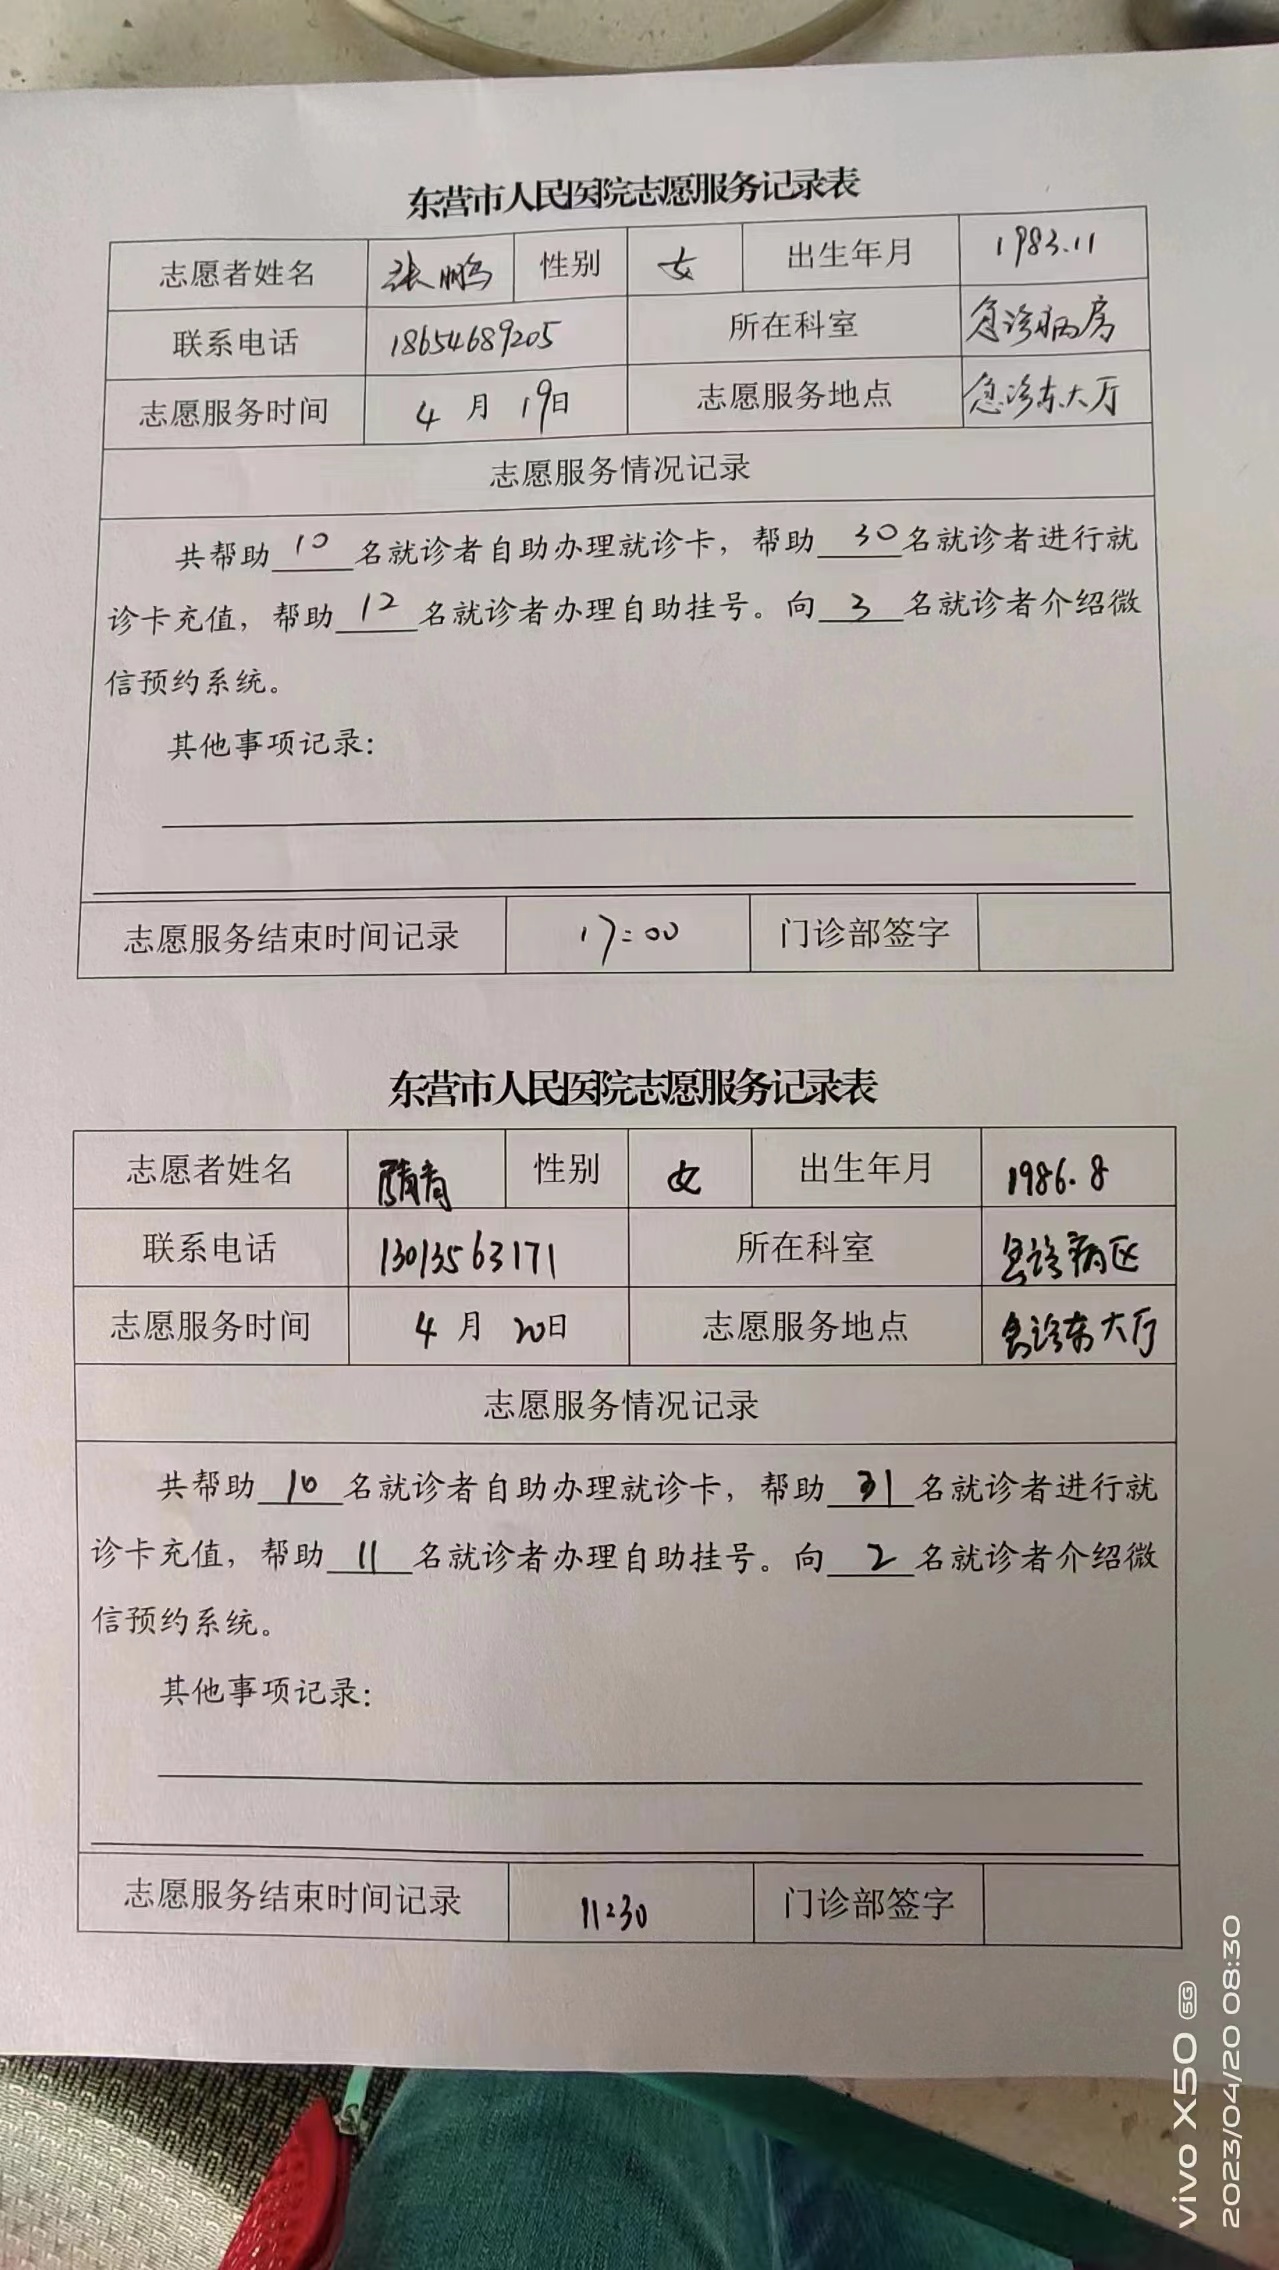 东营市人民医院志愿服务记录表
志愿者姓名 张鹏 性别 女 出生年月 1983.11
联系电话 18654689205 所在科室 急诊病房
志愿服务时间 4 月 19日 志愿服务地点 急诊东大厅
志愿服务情况记录
共帮助 10 名就诊者自助办理就诊卡，帮助 30 名就诊者进行就
诊卡充值，帮助 12 名就诊者办理自助挂号。向 3 名就诊者介绍微
信预约系统。
其他事项记录：
志愿服务结束时间记录 17:00 门诊部签字
东营市人民医院志愿服务记录表
志愿者姓名 隋青 性别 女 出生年月 1986.8
联系电话 13013563171 所在科室 急诊病区
志愿服务时间 4 月 20日 志愿服务地点 急诊东大厅
志愿服务情况记录
共帮助 10 名就诊者自助办理就诊卡，帮助 31 名就诊者进行就
诊卡充值，帮助 11 名就诊者办理自助挂号。向 2 名就诊者介绍微
信预约系统。
其他事项记录：
志愿服务结束时间记录 11:30 门诊部签字
vivo X50 5G
2023/04/20 08:30